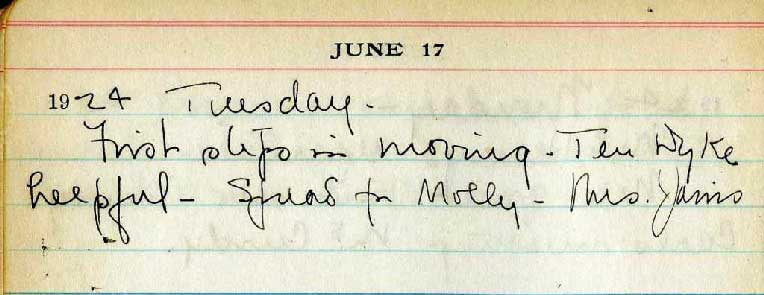 JUNE 17
1924 Tuesday.
First steps in moving - Ten Dyke
helpful - Spread for Molly - Mrs.